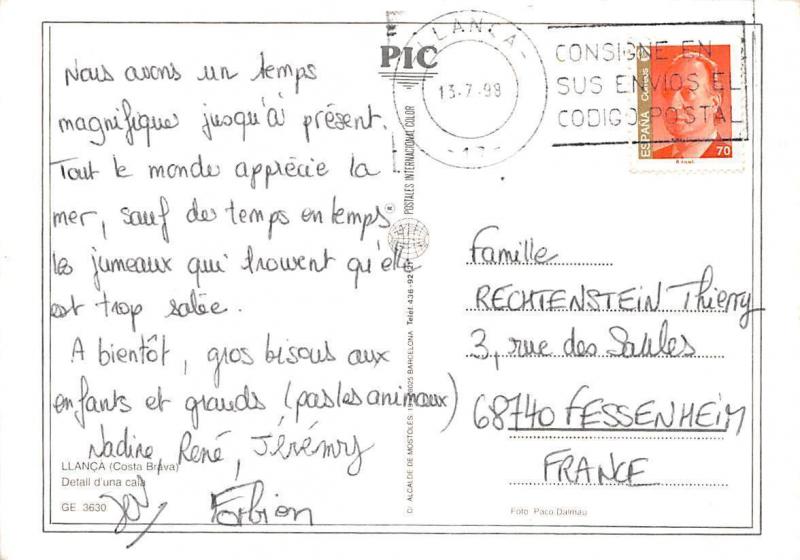 Nous avons un temps
magnifique jusqu'à présent.
Tout le monde apprécie la
mer, sauf de temps en temps
les jumeaux qui trouvent qu'elle
est trop salée.
A bientôt, gros bisous aux
enfants et grands (pas les animaux)
Nadine, René, Jérémy
Fabien
LLANÇA (Costa Brava)
Detall d'una cala
GE 3630
PIC
® POSTALES INTERNACIONAL COLOR
C/ ALCALDE DE MOSTOLES, 08025 BARCELONA Teléf. 436-92
LLANÇA
13-7-98
CONSIGNE EN
SUS ENVIOS EL
CODIGO POSTAL
ESPAÑA CORREOS
70
Famille
RECHTENSTEIN Thierry
3, rue des Saules
68740 FESSENHEIM
FRANCE
Foto: Paco Dalmau